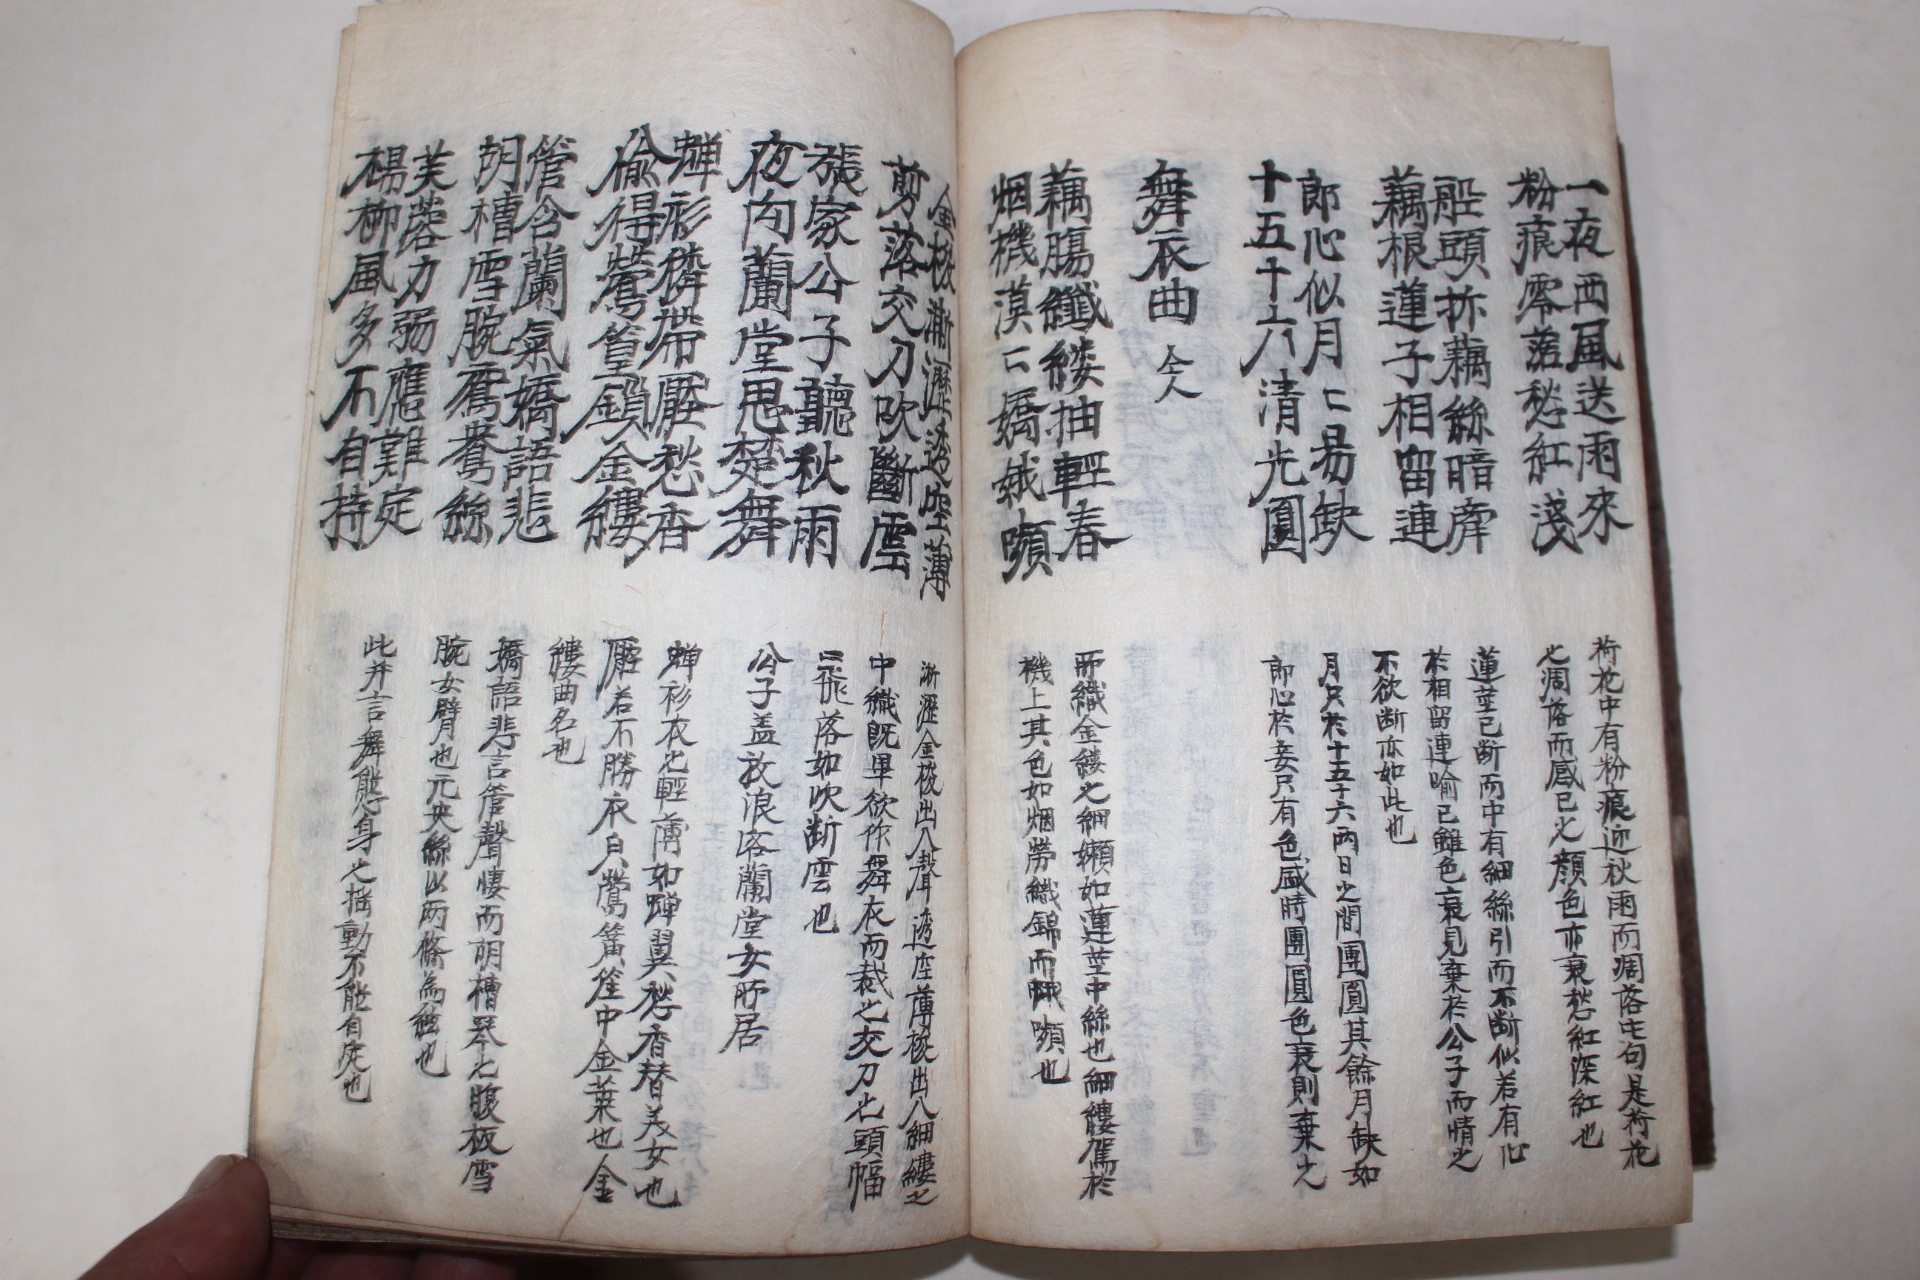 一夜西風送雨來
粉痕零落愁紅淺
舡頭折藕絲暗牽
藕根蓮子相留連
郎心似月月易缺
十五十六清光圓
舞衣曲 仝人
藕膓纖縷抽輕春
烟機漠漠嬌娥嚬
荷花中有粉痕迎秋雨而凋落此句是荷花
之凋落而感己之顔色亦衰愁紅深紅也
蓮莖已斷而中有細絲引而不斷似若有心
於相留連喻已雖色衰見棄於公子而情之
不欲断亦如此也
月只於十五十六兩日之間團圓其餘月缺如
郎心於妾只有色盛時團圓色衰則棄之
所織金縷之細纇如蓮莖中絲也細縷罵於
機上其色如烟勞織錦而嚬也
金梭淅瀝透空薄
剪落交刀吹斷雲
張家公子聽秋雨
夜向蘭堂思楚舞
蟬衫麟帶壓愁香
偸得鶯篁鎖金縷
管含蘭氣嬌語悲
胡槽雪腕鴛鴦絲
芙蓉力弱應難定
楊柳風多不自持
淅瀝金梭出入聲透空薄梭出入細縷之
中織既畢欲作舞衣而裁之交刀之頭幅
飛落如吹断雲也
公子盖放浪客蘭堂女所居
蟬衫衣之輕薄如蟬翼愁香替美女也
壓若不勝衣皃鶯篁笙中金葉也金
縷曲名也
嬌語悲言管聲悽而胡槽琴之腹板雪
腕女臂也元央絲以兩條為絃也
此并言舞態身之搖動不能自定也